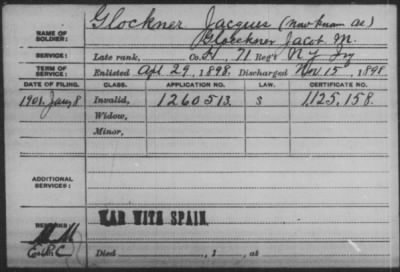 NAME OF SOLDIER: Glockner Jacques (now known as)
Gloeckner Jacob M.
SERVICE: Late rank, Co. H, 71 Reg't N Y Inf
TERM OF SERVICE: Enlisted Apl 29, 1898. Discharged Nov. 15, 1898
DATE OF FILING. CLASS. APPLICATION NO. LAW. CERTIFICATE NO.
1901. Jany 8 Invalid, 1260513. S 1,125,158.
Widow,
Minor,
ADDITIONAL SERVICES:
REMARKS: WAR WITH SPAIN.
Died , 1 , at